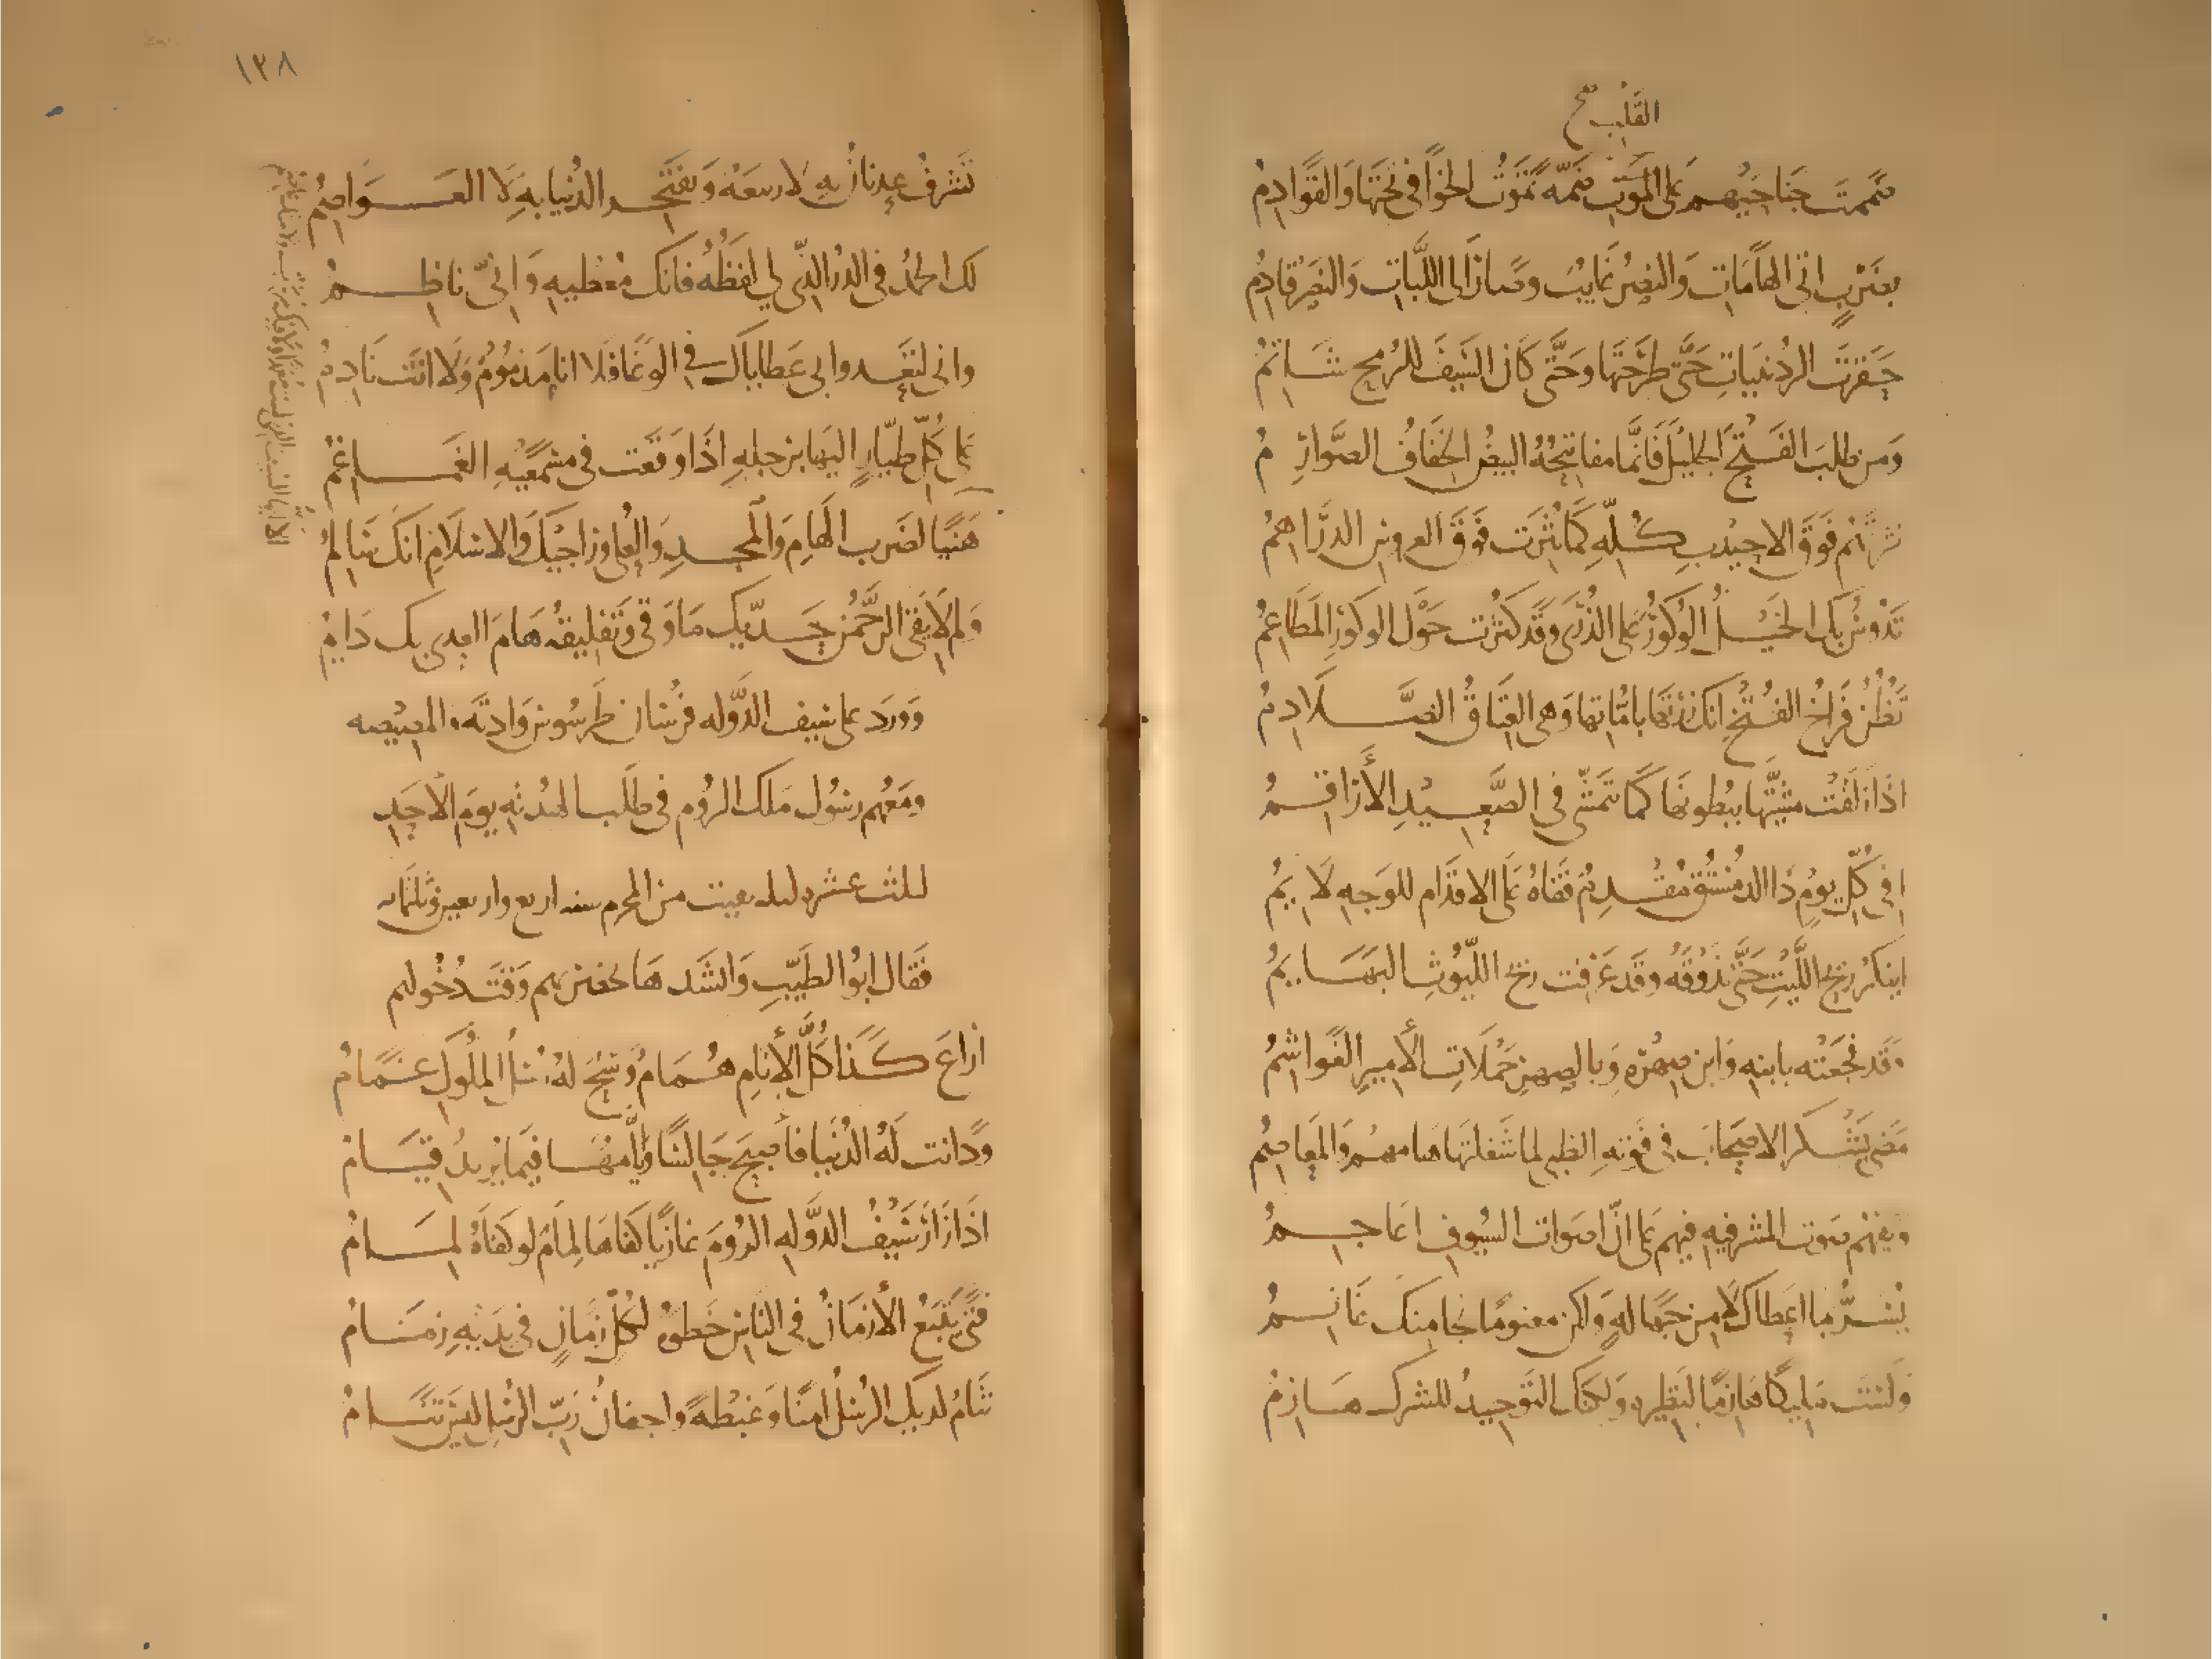 القلب صح
ضممتَ جَناحَيْهم على الموَتِ ضمّة تَمُوتُ الخوَافي تحتَها وَالقَوَادِمُ
بضَرْبٍ اتى الهَامَاتِ وَالنصرُ غَايبُ وصَارَ الى اللَّبّاتِ وَالنصَرُ قادِمُ
حَقرتَ الردُينيَاتِ حَتَّى طرَحْتَها وحَتَّى كَانَ السَيفَ للرُمح شَاتمُ
وَمن طلبَ الفَتْحَ الجليْلَ فَانَّما مفاتيْحُهُ البيضُ الخفَافُ الصَّوارِمُ
نثرتَهُم فَوقَ الاحيْدبِ كُلّهِ كَمَا نُثِرَت فَوقَ العروسِ الدرَاهمُ
تَدُوسُ بكَ الخيْلُ الوُكورُ عَلى الذُرَى وقَد كثرُت حَوْلَ الوكورِ المَطَاعِمُ
تظُنُ فرَاخُ الفُتْخِ انكَ زُرْتَها بامُّاتِها وَهى العِتَاقُ الصَّلَادِمُ
اذَا زَلقَتْ مَشّيْتَها ببُطونهَا كَمَا تَمَشّى في الصَّعيْدِ الأرَاقمُ
افي كُلّ يومٍ ذَا الدمُسْتُقُ مُقْدِمٌ قَفَاهُ عَلَى الاقدَام للوَجهِ لَايمُ
اينكرُ ريحَ اللَّيْثِ حَتَّى يَذُوقَهُ وقَد عَرَفت ريحَ اللّيُوثِ البهَايمُ
وَقَد فجَعَتْه بابنهِ وَابن صِهْرِه وَبالصِهرِ حَمْلَاتُ الأميرِ الغَواشِمُ
مَضى يَشْكر الاصْحَابَ في فَوتهِ الظبى لما شَغَلتها هَامهُم وَالمعَاصِمُ
ويفهَم صَوت المشرفيه فيهم عَلى انّ اصَوات السُيوف اعَاجمُ
يُسَرُّ بما اعطاكَ لَا من جَهَالةٍ وَلكن مغنومًا نجَا منكَ غَانمُ
وَلسْتَ مَليكًا هَازِمًا لنَظيرِه وَلكنّكَ التَوحِيدُ للشرك هَازِمُ
١٣٨
تَشرفُ عدنانُ بهِ لا ربيعَةُ وَتفتَخرُ الدُنيا بهِ لَا العَوَاصِمُ
لك الحمْدُ في الدُر الذّي لي لفظُهُ فانك مُعْطيهِ وَانّي نَاظِمُ
واني لتَعْدوا بي عَطاياكَ في الوَغَا فَلا انا مَذمُومُ وَلَا انتَ نَادِمُ
عَلى كُلّ طيّارٍ اليْها برجلهِ اذَا وَقعَت في مسْمَعَيْهِ الغَمَاغمُ
الا ايّها السَيف الذي لستَ مغمدًا ولا فيك مرتاب ولا منك عاصم
هَنيًا لضَرب الهَامِ وَالمجدِ وَالعُلى وراجيْكَ وَالاسْلَامِ انكَ سَالمُ
وَلِم لَا يَقى الرَّحمْنُ حَدّيكَ مَا وَقى وَتَفليقهُ هَامَ العِدى بك دَايمُ
وَورَدَ على سَيف الدَّوله فرُسَان طَرسُوسَ وَادنَه والمصيصه
ومَعَهُم رسُول مَلك الرُوم في طلَب الهدْنهِ يومَ الأحَدِ
لثلث عشره ليله بقيت من المحرم سنه اربع واربعين وثلثمايه
فقَالَ ابوُا الطَيّبِ وَانشَدهَا بحضرَتهم وَقتَ دُخُولهم
ارَاعَ كَذَا كُلَّ الأنامِ هُمَامُ وَسَحَّ لهُ رُسْلَ المُلُوكِ غمَامُ
وَدَانت لَهُ الدُنيَا فأصبحَ جَالسًا وَايّامُهَا فيمَا يُريدُ قيَامُ
اذَا زَارَ سَيْفُ الدَّولهِ الرُومَ غازيًا كفاهَا لِمَامُ لو كفَاهُ لمَامُ
فتًى يَتْبَعُ الأزمَانُ في النَاسِ خَطوَهُ لكُلّ زَمانٍ في يَدَيْهِ زمَامُ
تَنامُ لديكَ الرُسْلُ امنًا وَغبْطةً واجفانُ رَبّ الرُسْلِ ليسَ تنَامُ